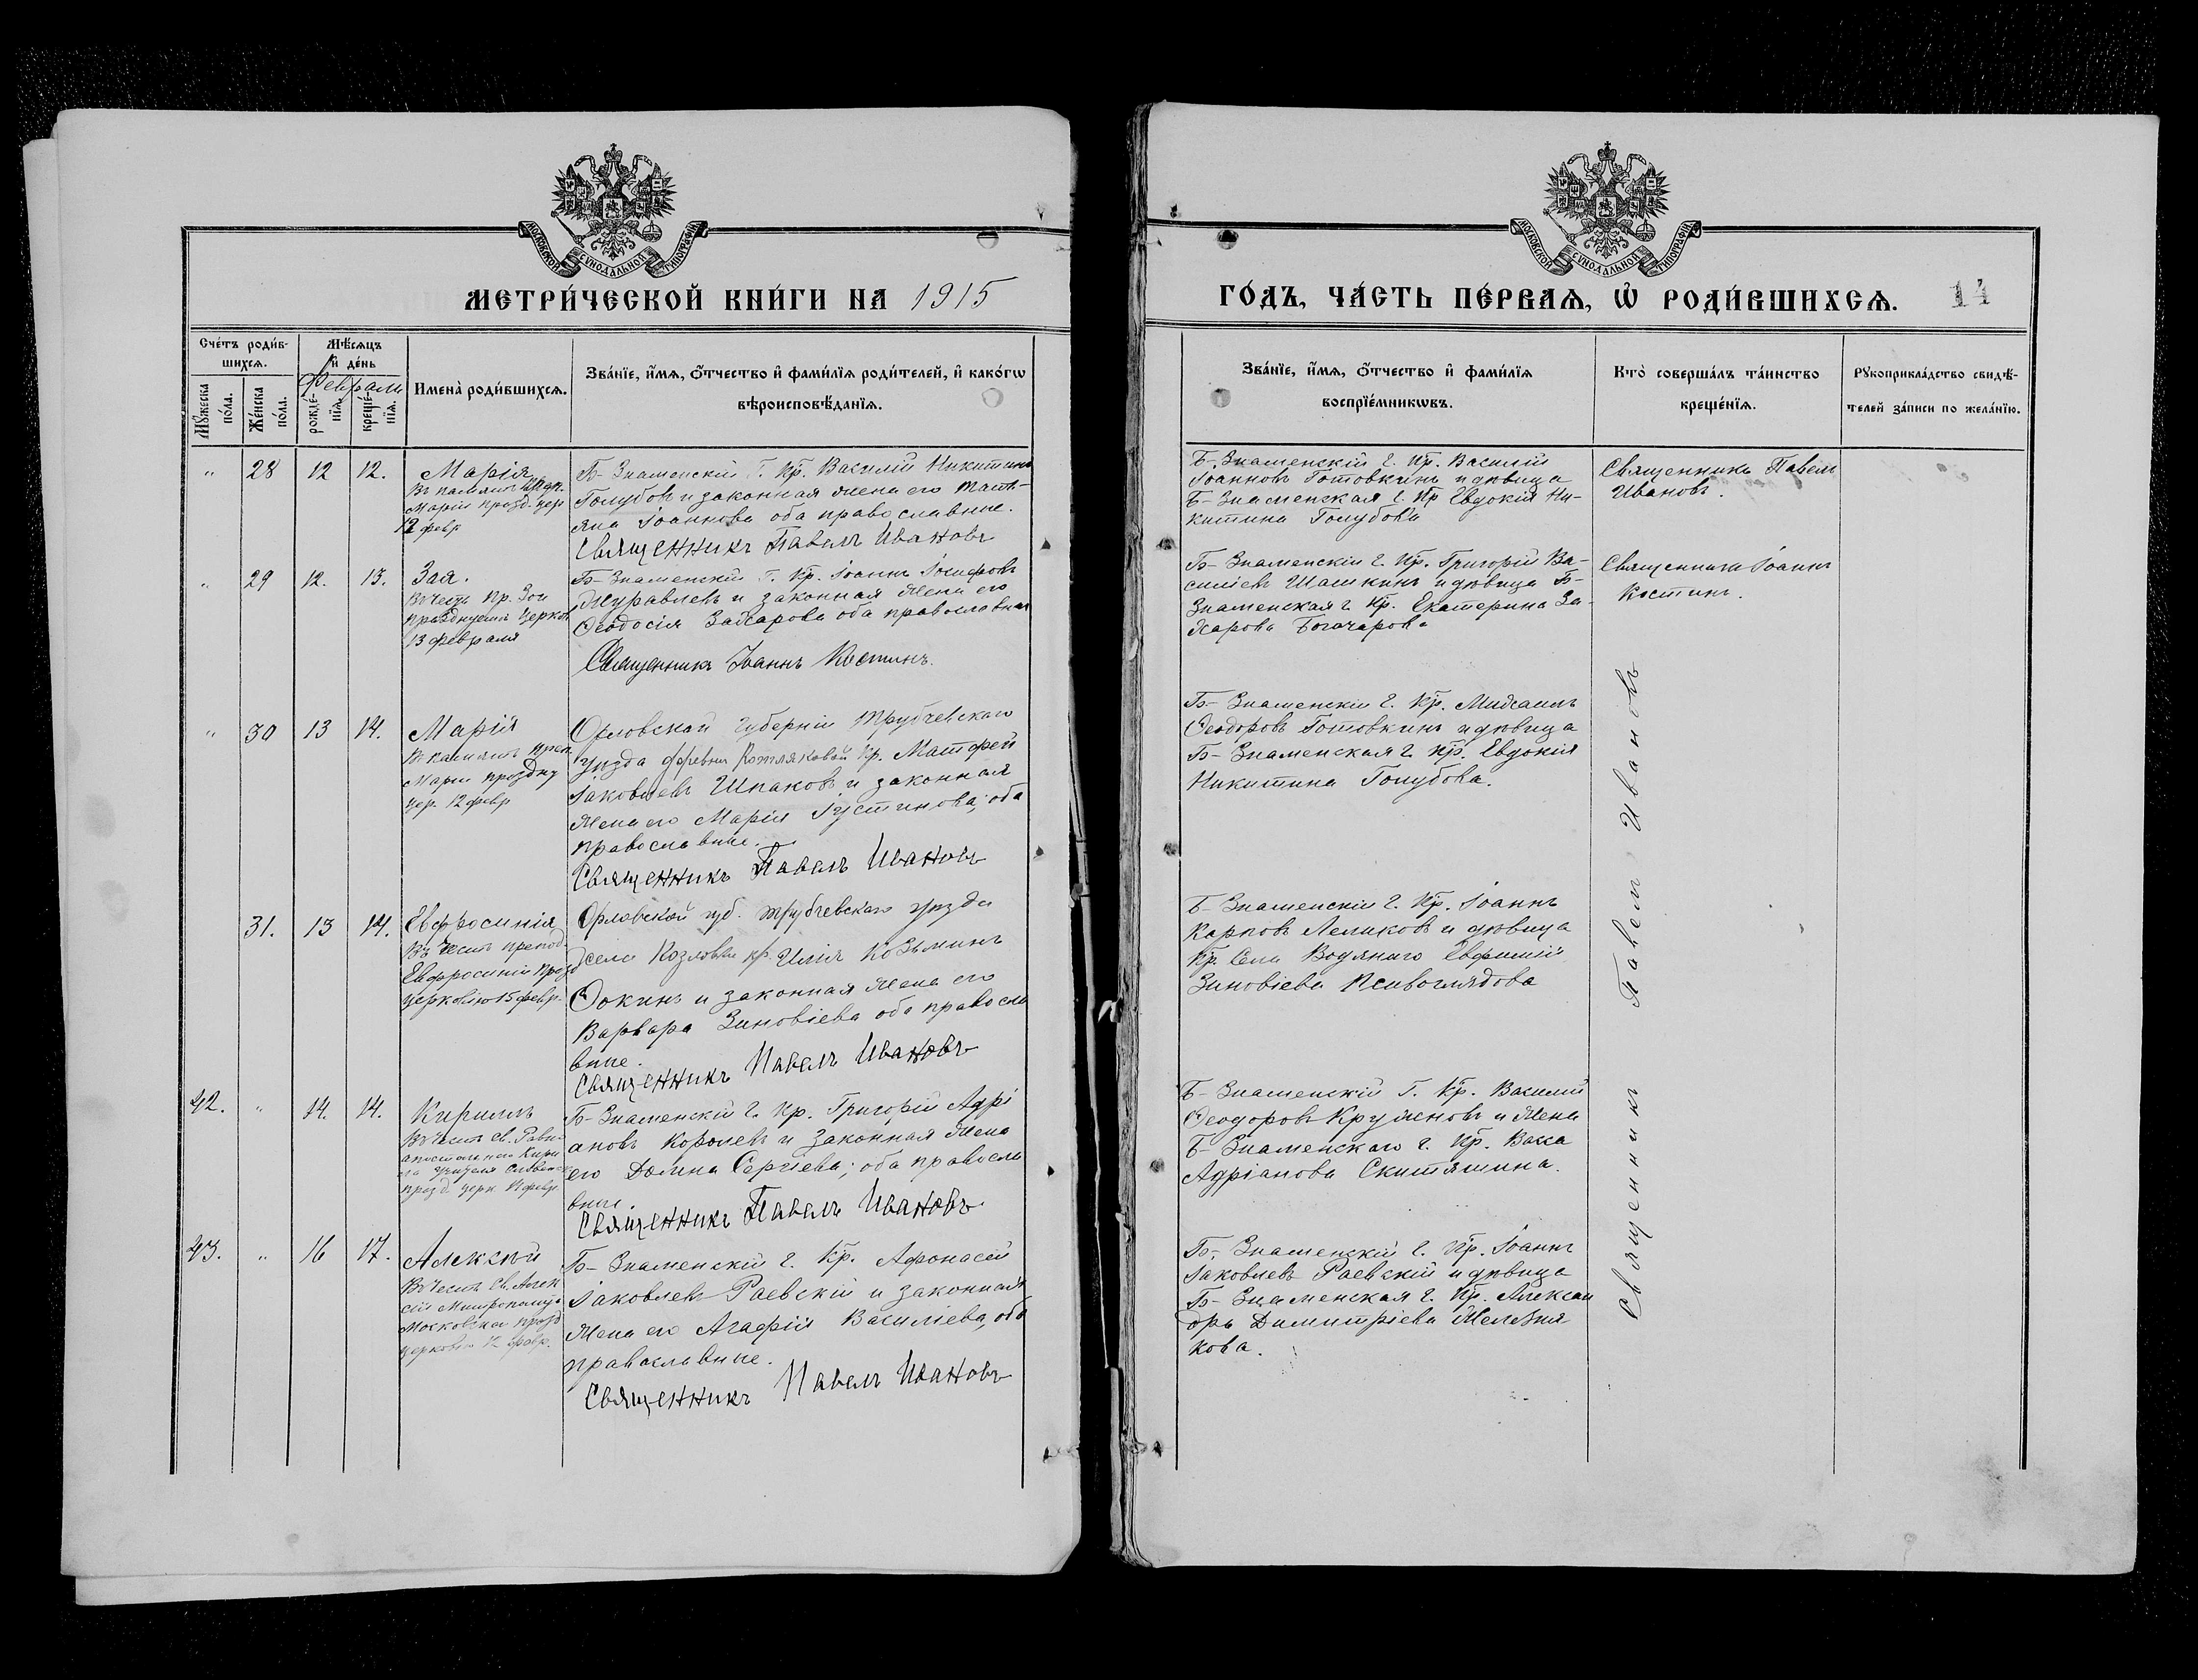 МОСКОВСКОЙ СѴНОДАЛЬНОЙ ТИПОГРАФІИ
МЕТРИ́ЧЕСКОЙ КНИ́ГИ НА 1915
Сче́тъ роди́в-
шихсѧ.
Мꙋ́жеска по́ла.
Же́нска по́ла.
Мѣ́сѧцъ
и҆ де́нь
Февраль
рожде́-
нїѧ.
креще́-
нїѧ.
Имена̀ роди́вшихсѧ.
Зва́нїе, и҆́мѧ, ѻ҆́тчество и҆ фами́лїѧ роди́телей, и҆ како́гѡ
вѣроисповѣ́данїѧ.
„ 28 12 12.
Марія
Въ память
Маріи празд. цер
12 февр
Б-Знаменскій Г. Кр. Василій Никитинъ
Голубовъ и законная жена его Тать-
яна Іоаннова оба православные.
Священникъ Павелъ Ивановъ
„ 29 12. 13.
Зоя.
Въ честь Пр. Зои
празднуемой Церков
13 февраля
Б-Знаменскій Г. Кр. Іоаннъ Іосифовъ
Журавлевъ и законная жена его
Ѳеодосія Захарова оба православная
Священникъ Іоаннъ Костинъ.
„ 30 13 14.
Марія
Въ память Преп.
Маріи праздну
цер. 12 февр
Орловской губерніи Трубчевскаго
уѣзда деревни Котляковой Кр. Матфей
Іаковлевъ Шпаковъ и законная
жена его Марія Іустинова; оба
православные.
Священникъ Павелъ Ивановъ
31. 13 14.
Евфросинія
Въ честь препод.
Евфросиніи празд
церковію 15 февр.
Орловской губ. Трубчевскаго уѣзда
села Козловки кр. Илія Козьминъ
Ѳокинъ и законная жена его
Варвара Зиновіева оба правосла
вные.
Священникъ Павелъ Ивановъ
42. „ 14. 14.
Кириллъ
Въ честь Св. Равно
апостольнаго Кири
ла учителя Словенск
празд. церк. 14 февр
Б-Знаменскій Г. Кр. Григорій Адрі
ановъ Королевъ и законная жена
его Домна Сергіева; оба правосла
вные.
Священникъ Павелъ Ивановъ
43. „ 16 17.
Алексѣй
Въ честь Св. Алек
сія Митрополита
Московскаго празд
церковію 12 февр.
Б-Знаменскій Г. Кр. Афонасій
Іаковлевъ Раевскій и законная
жена его Агафія Василіева, оба
православные.
Священникъ Павелъ Ивановъ
МОСКОВСКОЙ СѴНОДАЛЬНОЙ ТИПОГРАФІИ
ГО́ДЪ, ЧА́СТЬ ПЕ́РВАѦ, Ѡ҆ РОДИ́ВШИХСѦ. 14
Зва́нїе, и҆́мѧ, ѻ҆́тчество и҆ фами́лїѧ
воспрїе́мникѡвъ.
Кто̀ соверша́лъ та́инство
креще́нїѧ.
Рꙋкоприкла́дство свидѣ́-
телей за́писи по жела́нїю.
Б-Знаменскій Г. Кр. Василій
Іоанновъ Готовкинъ и дѣвица
Б-Знаменская Г. Кр Евдокія Ни-
китина Голубова
Священникъ Павелъ
Ивановъ.
Б-Знаменскій Г. Кр. Григорій Ва-
силіевъ Шашкинъ и дѣвица Б-
Знаменская Г. Кр. Екатерина За-
харова Богачарова
Священникъ Іоаннъ
Костинъ.
Б-Знаменскій Г. Кр. Михаилъ
Ѳеодоровъ Готовкинъ и дѣвица
Б-Знаменская Г. Кр. Евдокія
Никитина Голубова.
Б-Знаменскій Г. Кр. Іоаннъ
Карповъ Лемиковъ и дѣвица
Кр. Села Водянаго Евфимія
Зиновіева
Б-Знаменскій Г. Кр. Василій
Ѳеодоровъ Круженовъ и жена
Б-Знаменскаго Г. Кр. Васса
Адріанова Скитяшина.
Б-Знаменскій Г. Кр. Іоаннъ
Іаковлевъ Раевскій и дѣвица
Б-Знаменская Г. Кр. Алексан
дра Димитріева Железня
кова.
Священникъ Павелъ Ивановъ